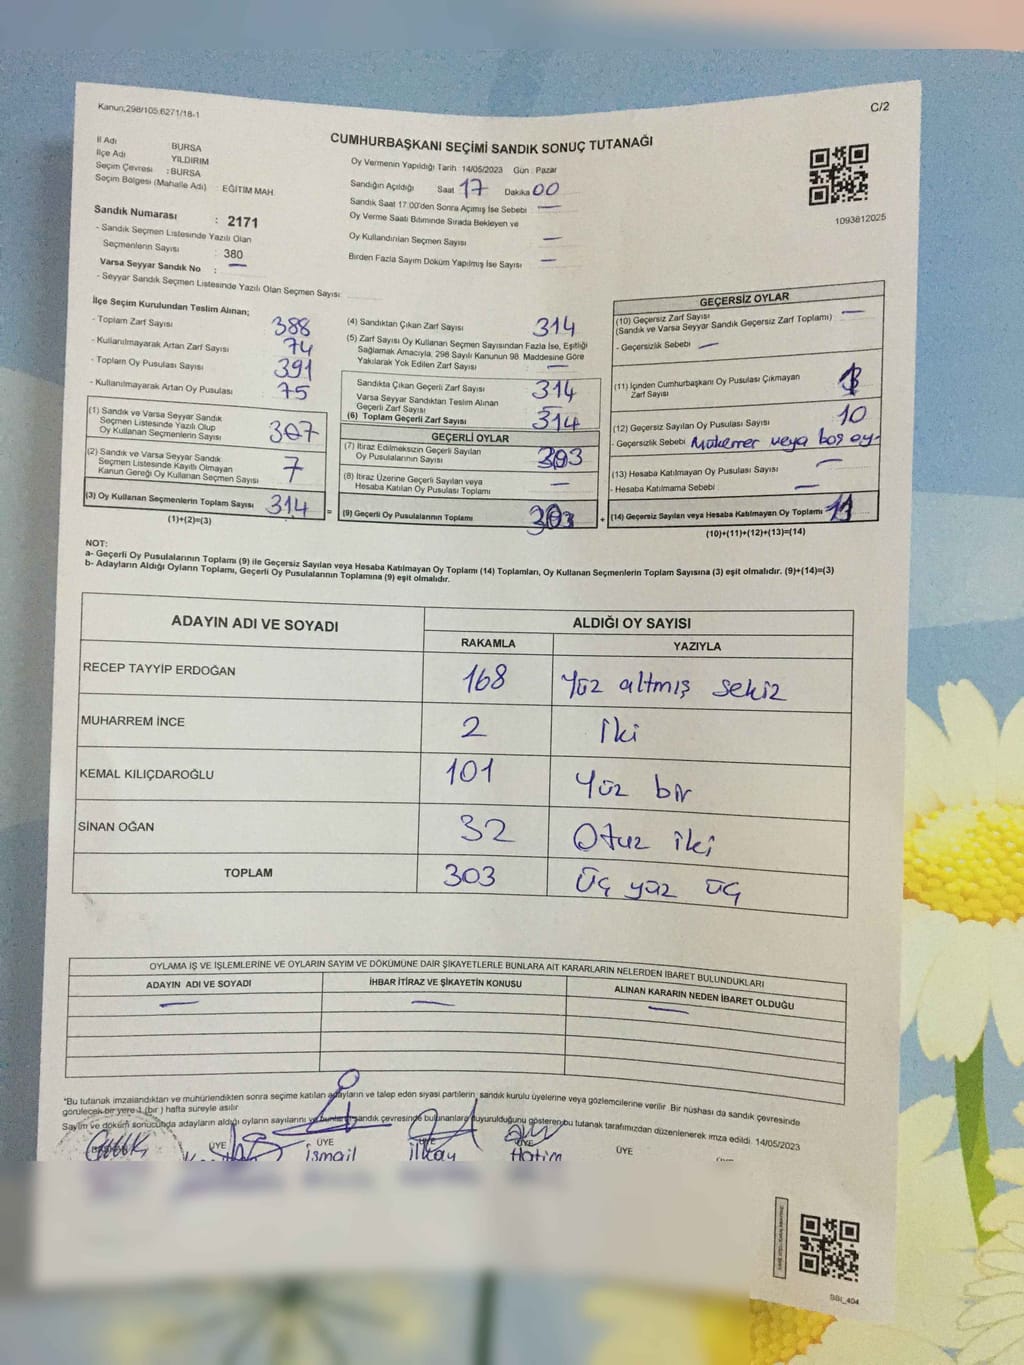 Kanun;298/105;6271/18-1
C/2
CUMHURBAŞKANI SEÇİMİ SANDIK SONUÇ TUTANAĞI
İl Adı BURSA
İlçe Adı YILDIRIM
Seçim Çevresi : BURSA
Seçim Bölgesi (Mahalle Adı) EĞİTİM MAH.
Sandık Numarası : 2171
- Sandık Seçmen Listesinde Yazılı Olan
Seçmenlerin Sayısı : 380
Varsa Seyyar Sandık No : —
- Seyyar Sandık Seçmen Listesinde Yazılı Olan Seçmen Sayısı:
Oy Vermenin Yapıldığı Tarih 14/05/2023 Gün : Pazar
Sandığın Açıldığı Saat 17 Dakika 00
Sandık Saat 17:00'den Sonra Açımış İse Sebebi —
Oy Verme Saati Bitiminde Sırada Bekleyen ve
Oy Kullandırılan Seçmen Sayısı —
Birden Fazla Sayım Döküm Yapılmış İse Sayısı —
1093812025
İlçe Seçim Kurulundan Teslim Alınan;
- Toplam Zarf Sayısı 388
- Kullanılmayarak Artan Zarf Sayısı 74
- Toplam Oy Pusulası Sayısı 391
- Kullanılmayarak Artan Oy Pusulası 75
(1) Sandık ve Varsa Seyyar Sandık
Seçmen Listesinde Yazılı Olup
Oy Kullanan Seçmenlerin Sayısı 307
(2) Sandık ve Varsa Seyyar Sandık
Seçmen Listesinde Kayıtlı Olmayan
Kanun Gereği Oy Kullanan Seçmen Sayısı 7
(3) Oy Kullanan Seçmenlerin Toplam Sayısı 314 =
(1)+(2)=(3)
(4) Sandıktan Çıkan Zarf Sayısı 314
(5) Zarf Sayısı Oy Kullanan Seçmen Sayısından Fazla İse, Eşitliği
Sağlamak Amacıyla, 298 Sayılı Kanunun 98. Maddesine Göre
Yakılarak Yok Edilen Zarf Sayısı —
Sandıkta Çıkan Geçerli Zarf Sayısı 314
Varsa Seyyar Sandıktan Teslim Alınan
Geçerli Zarf Sayısı —
(6) Toplam Geçerli Zarf Sayısı 314
GEÇERLİ OYLAR
(7) İtiraz Edilmeksizin Geçerli Sayılan
Oy Pusulalarının Sayısı 303
(8) İtiraz Üzerine Geçerli Sayılan veya
Hesaba Katılan Oy Pusulası Toplamı —
(9) Geçerli Oy Pusulalarının Toplamı 303 +
GEÇERSİZ OYLAR
(10) Geçersiz Zarf Sayısı —
(Sandık ve Varsa Seyyar Sandık Geçersiz Zarf Toplamı)
- Geçersizlik Sebebi —
(11) İçinden Cumhurbaşkanı Oy Pusulası Çıkmayan
Zarf Sayısı 1
(12) Geçersiz Sayılan Oy Pusulası Sayısı 10
- Geçersizlik Sebebi Mükerrer veya boş oy-
(13) Hesaba Katılmayan Oy Pusulası Sayısı —
- Hesaba Katılmama Sebebi —
(14) Geçersiz Sayılan veya Hesaba Katılmayan Oy Toplamı 11
(10)+(11)+(12)+(13)=(14)
NOT:
a- Geçerli Oy Pusulalarının Toplamı (9) ile Geçersiz Sayılan veya Hesaba Katılmayan Oy Toplamı (14) Toplamları, Oy Kullanan Seçmenlerin Toplam Sayısına (3) eşit olmalıdır. (9)+(14)=(3)
b- Adayların Aldığı Oyların Toplamı, Geçerli Oy Pusulalarının Toplamına (9) eşit olmalıdır.
ADAYIN ADI VE SOYADI ALDIĞI OY SAYISI
RAKAMLA YAZIYLA
RECEP TAYYİP ERDOĞAN 168 Yüz altmış sekiz
MUHARREM İNCE 2 İki
KEMAL KILIÇDAROĞLU 101 Yüz bir
SİNAN OĞAN 32 Otuz iki
TOPLAM 303 Üç yüz üç
OYLAMA İŞ VE İŞLEMLERİNE VE OYLARIN SAYIM VE DÖKÜMÜNE DAİR ŞİKAYETLERLE BUNLARA AİT KARARLARIN NELERDEN İBARET BULUNDUKLARI
ADAYIN ADI VE SOYADI İHBAR İTİRAZ VE ŞİKAYETİN KONUSU ALINAN KARARIN NEDEN İBARET OLDUĞU
— — —
"Bu tutanak imzalandıktan ve mühürlendikten sonra seçime katılan adayların ve talep eden siyasi partilerin, sandık kurulu üyelerine veya gözlemcilerine verilir. Bir nüshası da sandık çevresinde
görülecek bir yere 1 (bir ) hafta süreyle asılır
Sayım ve döküm sonucunda adayların aldığı oyların sayılarını ve sandık çevresinde bulunanlara duyurulduğunu gösteren bu tutanak tarafımızdan düzenlenerek imza edildi. 14/05/2023
ÜYE ÜYE ÜYE ÜYE ÜYE
İsmail İlkay Hatim
BBI_404